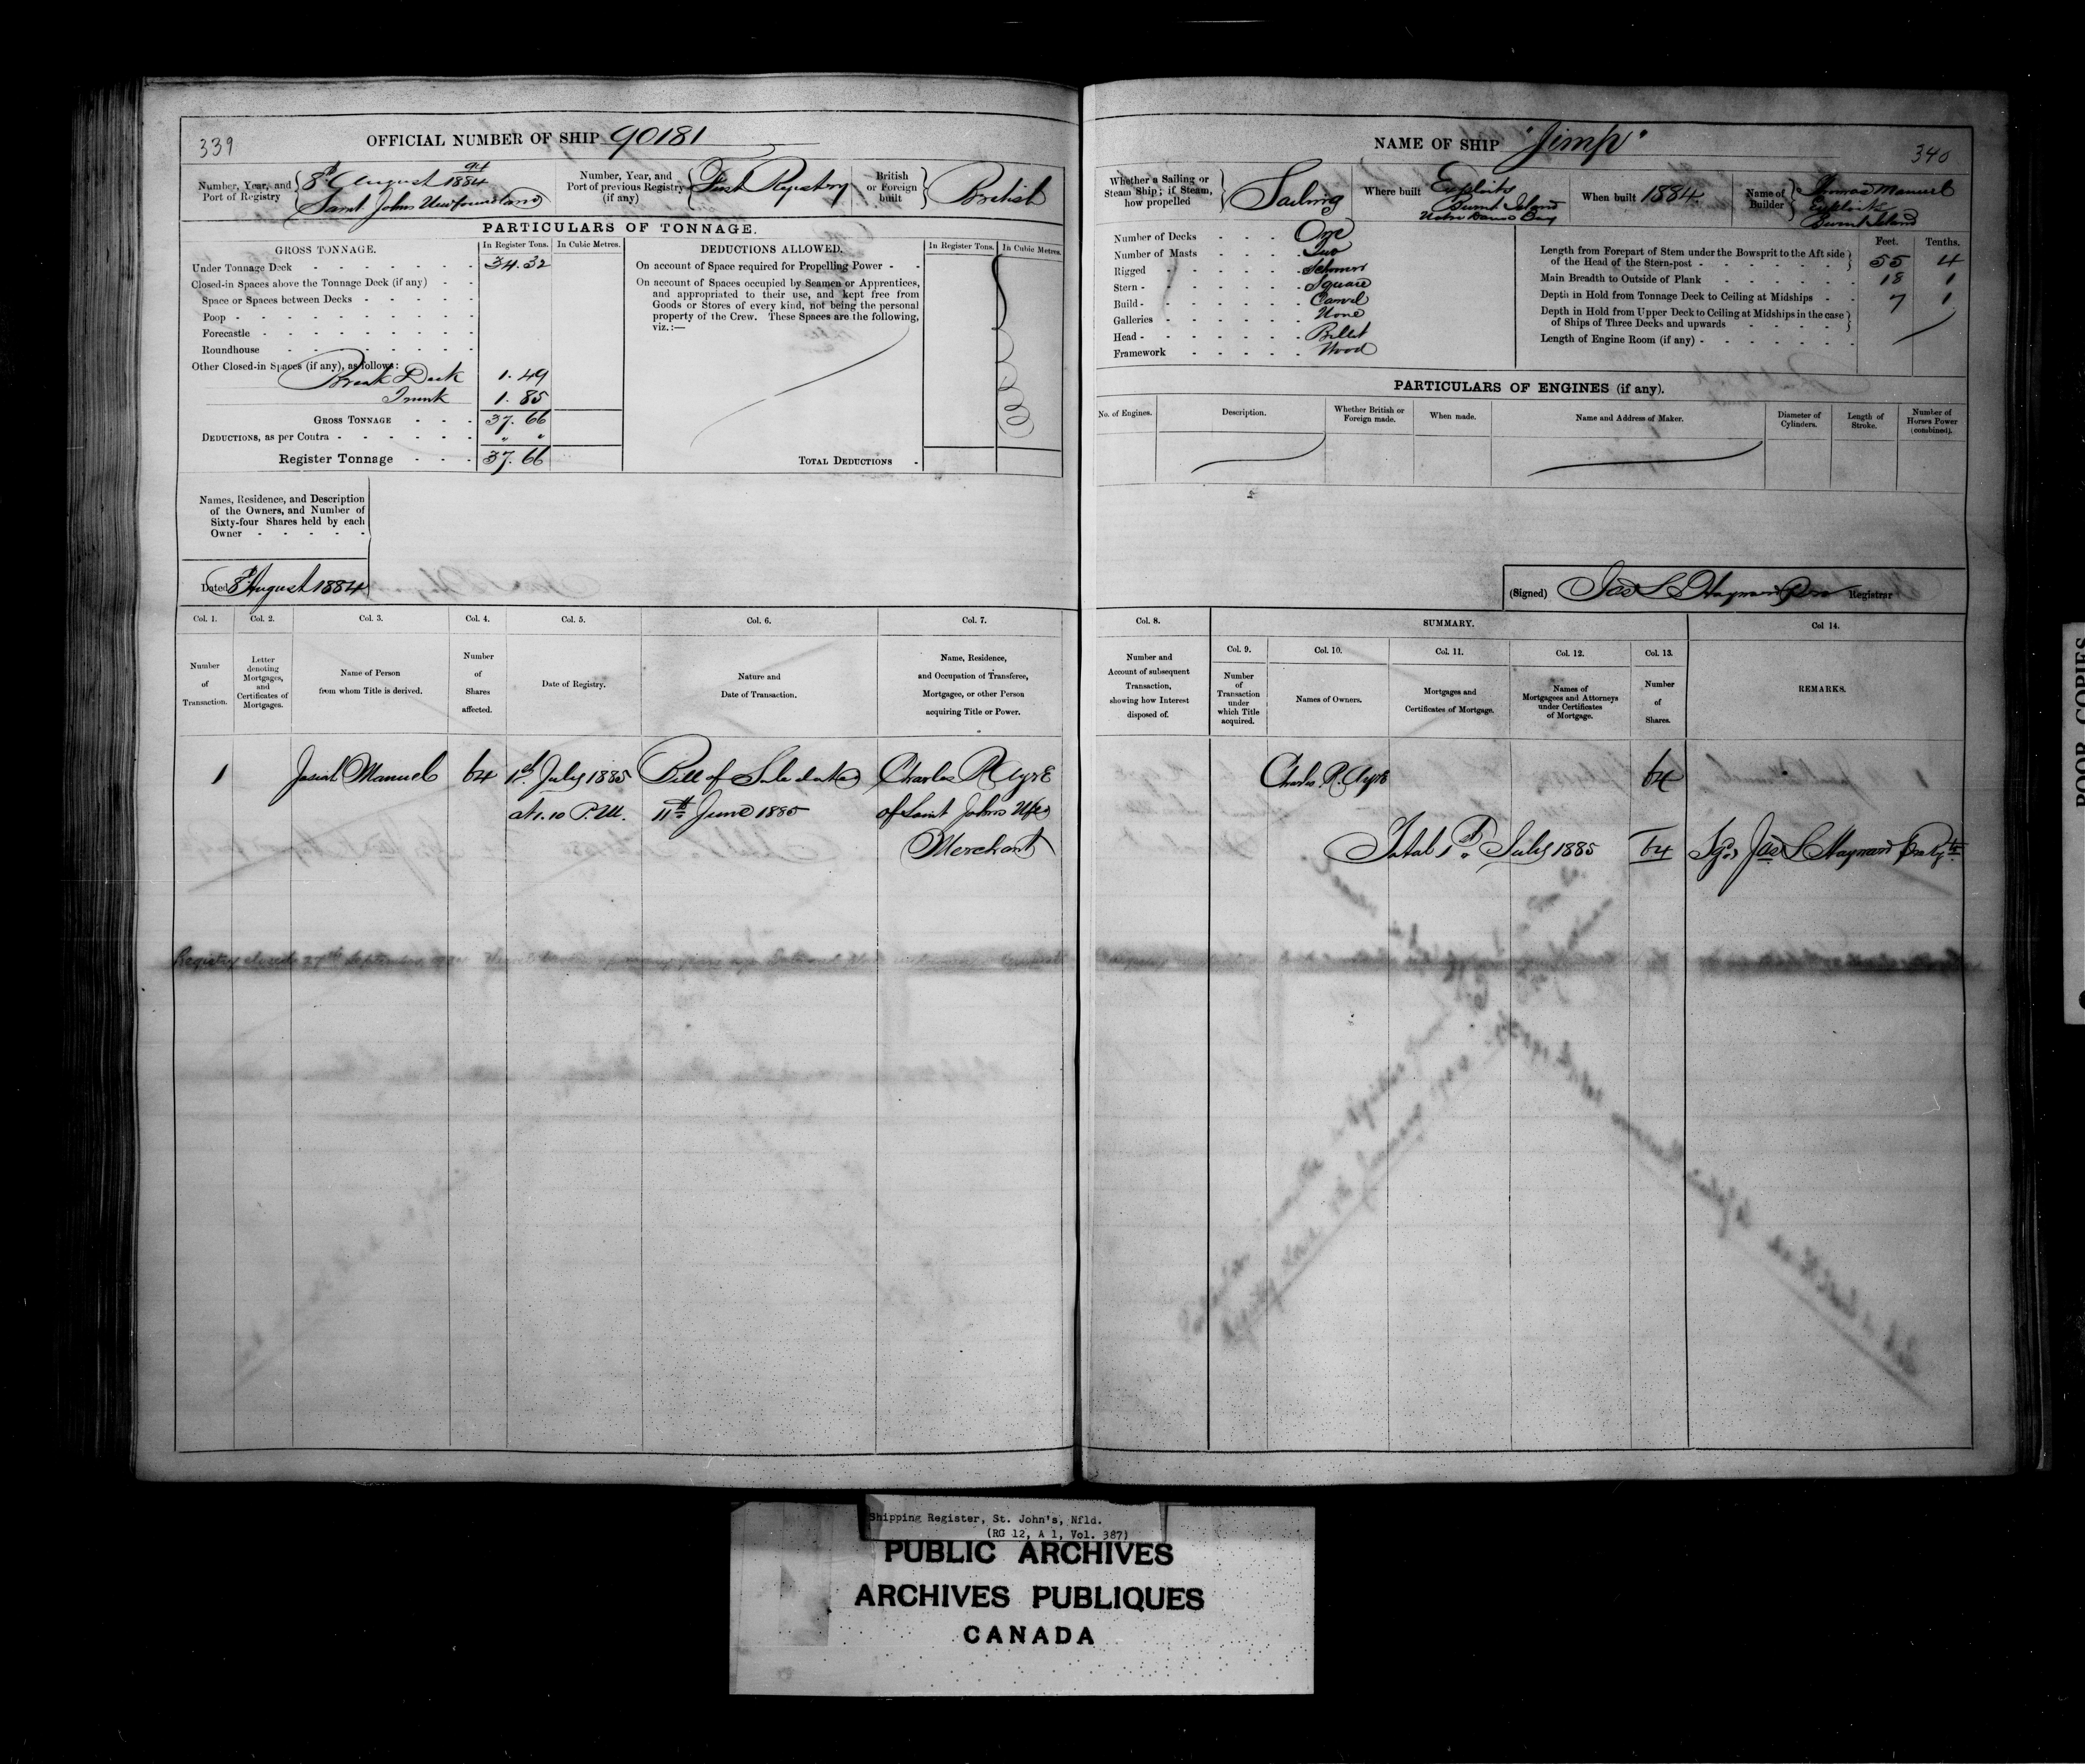 339
OFFICIAL NUMBER OF SHIP 90181
Number, Year, and Port of Registry
8th August 1884
Saint Johns Newfoundland
Number, Year, and Port of previous Registry (if any)
First Registry
British or Foreign built
British
PARTICULARS OF TONNAGE.
GROSS TONNAGE.
In Register Tons.
In Cubic Metres.
DEDUCTIONS ALLOWED.
In Register Tons.
In Cubic Metres.
Under Tonnage Deck 34.32
Closed-in Spaces above the Tonnage Deck (if any)
Space or Spaces between Decks
Poop
Forecastle
Roundhouse
Other Closed-in Spaces (if any), as follows:
Break Deck 1.49
Trunk 1.85
GROSS TONNAGE 37.66
DEDUCTIONS, as per Contra " "
Register Tonnage 37.66
On account of Space required for Propelling Power
On account of Spaces occupied by Seamen or Apprentices,
and appropriated to their use, and kept free from
Goods or Stores of every kind, not being the personal
property of the Crew. These Spaces are the following,
viz.:—
TOTAL DEDUCTIONS
Names, Residence, and Description
of the Owners, and Number of
Sixty-four Shares held by each
Owner
Dated 8th August 1884
Col. 1. Col. 2. Col. 3. Col. 4. Col. 5. Col. 6. Col. 7.
Number of Transaction.
Letter denoting Mortgages, and Certificates of Mortgages.
Name of Person from whom Title is derived.
Number of Shares affected.
Date of Registry.
Nature and Date of Transaction.
Name, Residence, and Occupation of Transferee, Mortgagee, or other Person acquiring Title or Power.
1 Josiah Manuel 64 1st July 1885 Bill of Sale dated Charles R Ayre
at 1.10 P.M. 11th June 1885 of Saint Johns Nfld
Merchant
Registry closed 27th September
NAME OF SHIP "Jimp"
340
Whether a Sailing or Steam Ship; if Steam, how propelled
Sailing
Where built
Exploits
Burnt Island
Notre Dame Bay
When built 1884
Name of Builder
Thomas Manuel
Exploits
Burnt Island
Number of Decks One
Number of Masts Two
Rigged Schooner
Stern Square
Build Carvel
Galleries None
Head Billet
Framework Wood
Feet. Tenths.
Length from Forepart of Stem under the Bowsprit to the Aft side
of the Head of the Stern-post 55 4
Main Breadth to Outside of Plank 18 1
Depth in Hold from Tonnage Deck to Ceiling at Midships 7 1
Depth in Hold from Upper Deck to Ceiling at Midships in the case
of Ships of Three Decks and upwards
Length of Engine Room (if any)
PARTICULARS OF ENGINES (if any).
No. of Engines.
Description.
Whether British or Foreign made.
When made.
Name and Address of Maker.
Diameter of Cylinders.
Length of Stroke.
Number of Horses Power (combined).
(Signed) Jas S Hayward Registrar
Col. 8.
SUMMARY.
Col 14.
Col. 9. Col. 10. Col. 11. Col. 12. Col. 13.
Number and Account of subsequent Transaction, showing how Interest disposed of.
Number of Transaction under which Title acquired.
Names of Owners.
Mortgages and Certificates of Mortgage.
Names of Mortgagees and Attorneys under Certificates of Mortgage.
Number of Shares.
REMARKS.
Charles R. Ayre 64
Total 1st July 1885 64 Sgd Jas S Hayward
POOR COPIES
Shipping Register, St. John's, Nfld.
(RG 12, A 1, Vol. 387)
PUBLIC ARCHIVES
ARCHIVES PUBLIQUES
CANADA